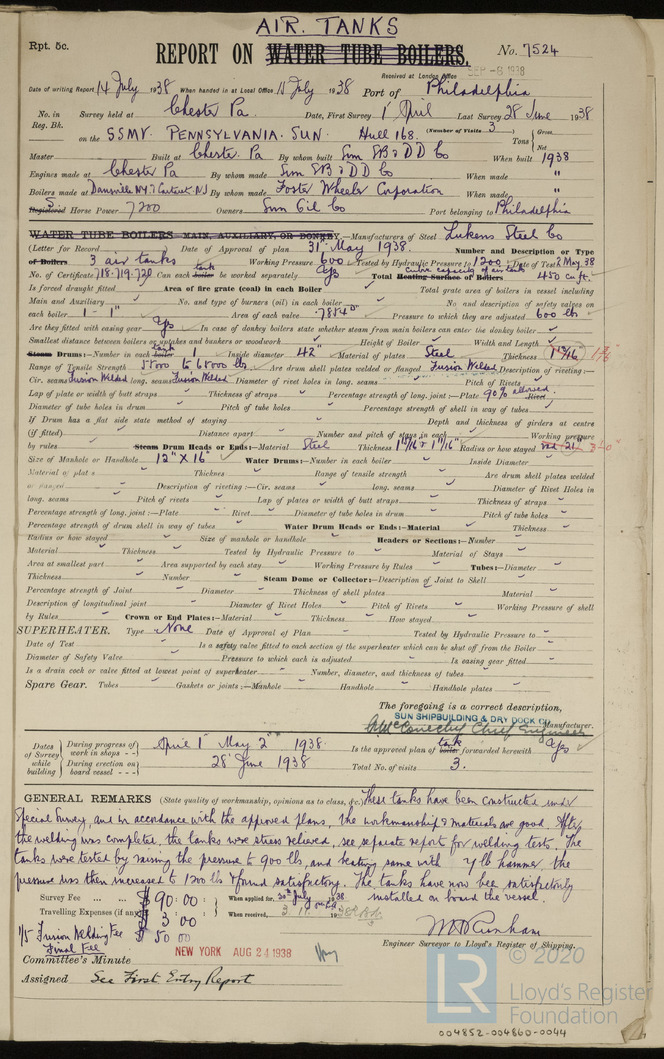 AIR. TANKS
Rpt. 5c.
REPORT ON WATER TUBE BOILERS. No. 7524
SEP -6 1938
Received at London Office
Date of writing Report 14 July 1938 When handed in at Local Office 11 July 1938 Port of Philadelphia
No. in Reg. Bk. Survey held at Chester Pa. Date, First Survey 1 April Last Survey 28 June 1938
(Number of Visits 3)
on the SSMV. PENNSYLVANIA. SUN. Hull 168. Tons { Gross Net
Master Built at Chester. Pa By whom built Sun SB & DD Co When built 1938
Engines made at Chester Pa By whom made Sun SB & DD Co When made "
Boilers made at Dansville NY & Carteret NJ By whom made Foster Wheeler Corporation When made "
Registered Horse Power 7200 Owners Sun Oil Co Port belonging to Philadelphia
WATER TUBE BOILERS—MAIN, AUXILIARY, OR DONKEY.—Manufacturers of Steel Lukens Steel Co
(Letter for Record ) Date of Approval of plan 31st May 1938. Number and Description or Type
of Boilers 3 air tanks Working Pressure 600 Tested by Hydraulic Pressure to 1200 Date of Test 2 May 38
No. of Certificate 718-719-720 Can each boiler tank be worked separately Yes Total Heating Surface of Boilers cubic capacity of air tanks 450 cu ft.
Is forced draught fitted Area of fire grate (coal) in each Boiler Total grate area of boilers in vessel including
Main and Auxiliary No. and type of burners (oil) in each boiler No. and description of safety valves on
each boiler 1 - 1" Area of each valve .7854 □" Pressure to which they are adjusted 600 lbs
Are they fitted with easing gear Yes In case of donkey boilers state whether steam from main boilers can enter the donkey boiler
Smallest distance between boilers or uptakes and bunkers or woodwork Height of Boiler Width and Length
Steam Drums:—Number in each boiler tank 1 Inside diameter 42" Material of plates Steel Thickness 1 13/16
Range of Tensile Strength 55000 to 65000 lbs Are drum shell plates welded or flanged Fusion Welded Description of riveting:—
Cir. seams Fusion Welded long. seams Fusion Welded Diameter of rivet holes in long. seams Pitch of Rivets
Lap of plate or width of butt straps Thickness of straps Percentage strength of long. joint:—Plate 90% allowed. Rivet
Diameter of tube holes in drum Pitch of tube holes Percentage strength of shell in way of tubes
If Drum has a flat side state method of staying Depth and thickness of girders at centre
(if fitted) Distance apart Number and pitch of stays in each Working pressure
by rules Steam Drum Heads or Ends:—Material Steel Thickness Radius or how stayed
Size of Manhole or Handhole 12" X 16" Water Drums:—Number in each boiler Inside Diameter
Material of plates Thickness Range of tensile strength Are drum shell plates welded
or flanged Description of riveting:—Cir. seams long. seams Diameter of Rivet Holes in
long. seams Pitch of rivets Lap of plates or width of butt straps Thickness of straps
Percentage strength of long. joint:—Plate Rivet Diameter of tube holes in drum Pitch of tube holes
Percentage strength of drum shell in way of tubes Water Drum Heads or Ends:—Material Thickness
Radius or how stayed Size of manhole or handhole Headers or Sections:—Number
Material Thickness Tested by Hydraulic Pressure to Material of Stays
Area at smallest part Area supported by each stay Working Pressure by Rules Tubes:—Diameter
Thickness Number Steam Dome or Collector:—Description of Joint to Shell
Percentage strength of Joint Diameter Thickness of shell plates Material
Description of longitudinal joint Diameter of Rivet Holes Pitch of Rivets Working Pressure of shell
by Rules Crown or End Plates:—Material Thickness How stayed
SUPERHEATER. Type None Date of Approval of Plan Tested by Hydraulic Pressure to
Date of Test Is a safety valve fitted to each section of the superheater which can be shut off from the Boiler
Diameter of Safety Valve Pressure to which each is adjusted Is easing gear fitted
Is a drain cock or valve fitted at lowest point of superheater Number, diameter, and thickness of tubes
Spare Gear. Tubes Gaskets or joints:—Manhole Handhole Handhole plates
The foregoing is a correct description,
SUN SHIPBUILDING & DRY DOCK CO. Manufacturer.
Chief Engineer
Dates of Survey while building { During progress of work in shops - - } April 1st May 2nd 1938. Is the approved plan of boiler tank forwarded herewith Yes
{ During erection on board vessel - - - } 28th June 1938 Total No. of visits 3.
GENERAL REMARKS (State quality of workmanship, opinions as to class, &c.) These tanks have been constructed under
Special Survey, and in accordance with the approved plans, the workmanship & materials are good. After
the welding was completed, the tanks were stress relieved, see separate report for welding tests. The
tanks were tested by raising the pressure to 900 lbs, and beating same with 7 lb hammer the
pressure was then increased to 1200 lbs & found satisfactory. The tanks have now been satisfactorily
installed on board the vessel.
Survey Fee ... ... $ 90:00 : When applied for, 20th July 1938
Travelling Expenses (if any) $ 3 00 : When received,
1/5 Fusion Welding Fee $ 50 00
Final Fee
Engineer Surveyor to Lloyd's Register of Shipping.
Committee's Minute NEW YORK AUG 24 1938
Assigned See First Entry Report
LR © 2020
Lloyd's Register
Foundation
004852-004860-0044